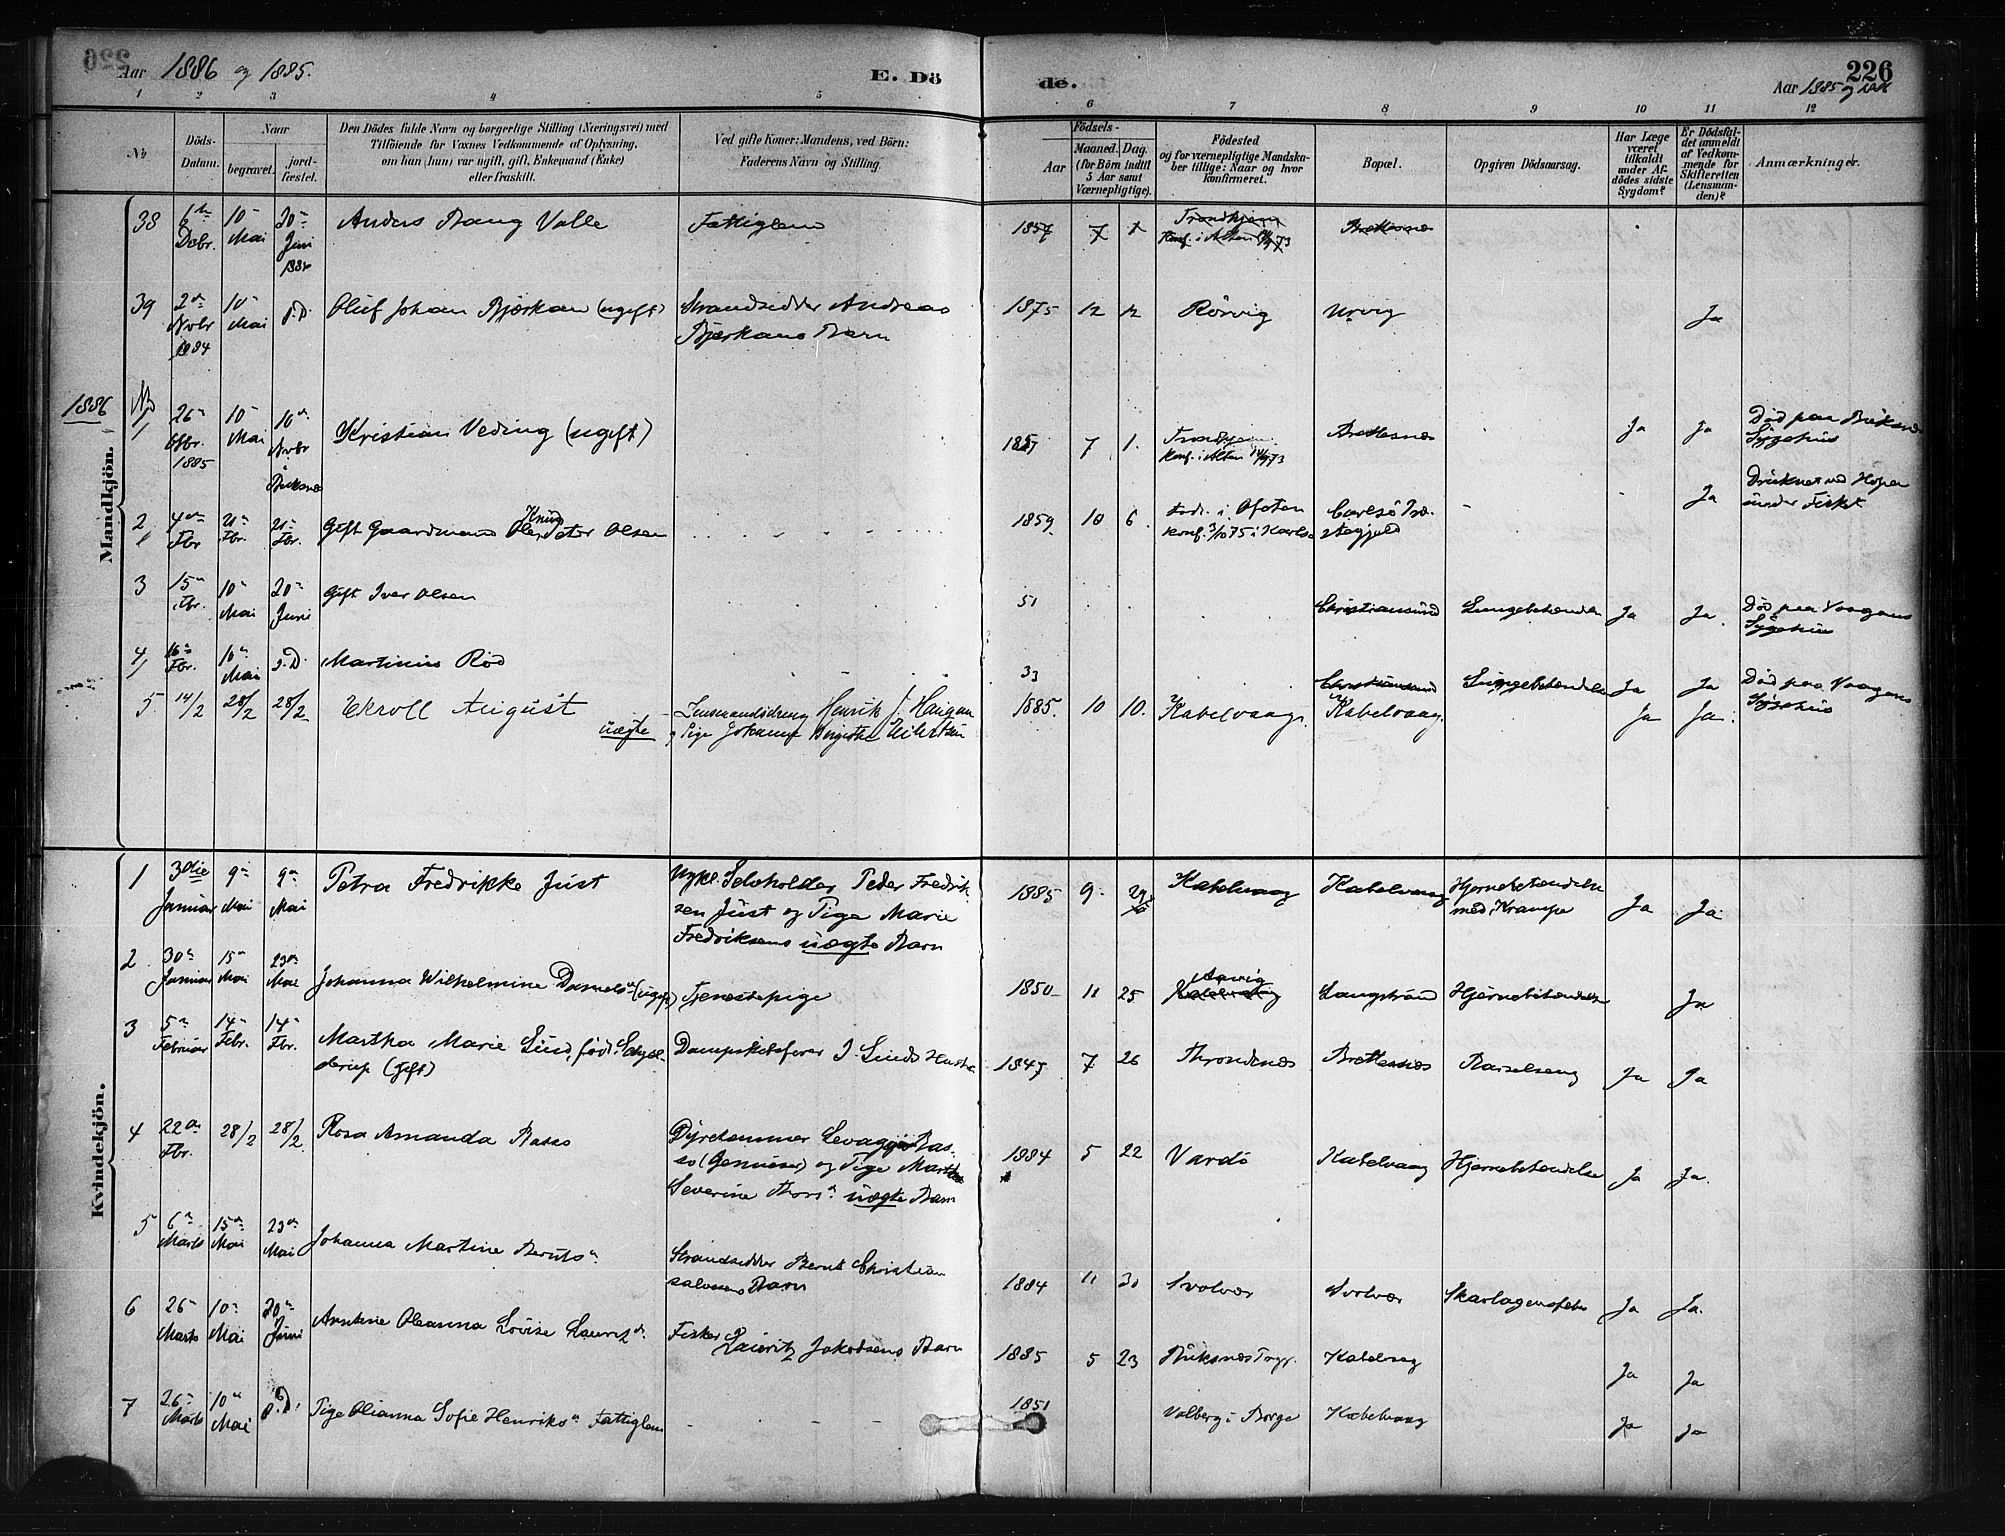 Aar 1886 og 1885.
E. Dö
de.
226
Aar 1885 og
1 2 3 4 5 6 7 8 9 10 11 12
No
Döds-
Datum.
Naar
begravet.
jord-
fæstet.
Den Dödes fulde Navn og borgerlige Stilling (Næringsvei) med
Tilföiende for Voxnes Vedkommende af Oplysning,
om han (hun) var ugift, gift, Enkemand (Enke)
eller fraskilt.
Ved gifte Koner: Mandens, ved Börn:
Faderens Navn og Stilling.
Födsels-
Aar
Maaned. Dag.
(for Börn indtil
5 Aar samt
Værnepligtige).
Födested
og for værnepligtige Mandska-
ber tillige: Naar og hvor
konfirmeret.
Bopæl.
Opgiven Dödsaarsag.
Har Læge
været
tilkaldt
under Af-
dödes sidste
Sygdom?
Er Dödsfal-
det anmeldt
af Vedkom-
mende for
Skifteretten
(Lensman-
den)?
Anmærkninger.
Mandkjön.
38 6te Debr. 10 Mai 20 Juni 1886 Anders Bang Valle Fattiglem 1857 7 1 Trondhjem Konf. i Alten Brettesnæs
39 2den Novbr 1884 10 Mai s.D. Oluf Johan Bjerkan (ugift) Strandsidder Andreas
Bjerkans Barn 1875 12 12 Rörvig Ja
1886
No
1 26 Otbr. 1885 10 Mai 10 Novbr Buksnæs Kristian Veding (ugift) 1857 7 1. Trondhjem Konf. i Alten Brettesnæs Ja Ja Död paa Buksnæs
Sygehus
2 4de Fbr 21 Fbr. 21 Fbr. Gift Gaardmand Knud Peter Olsen 1859 10 6. Föd. i Ofoten
Konf. 3/10 75 i Karlsö Carlsö Præ-
stegjeld Ja Druknet ved Hopen
under Fisket
3 15 Fbr. 10 Mai 20 Juni Gift Iver Olsen 51 Christiansund Lungebetændelse Ja Ja. Död paa Vaagans
Sygehus
4 16 Fbr. 10 Mai s.D. Martinus Röd 33 Christiansund Lungebetændelse Ja Ja Död paa Vaagans
Sygehus
5 14/2 28/2 28/2 Ekroll August uægte Lensmandsdreng Henrik J. Haugan
og Pige 1885. 10 10. Kabelvaag. Kabelvaag. Ja Ja.
Kvindekjön.
1 3die Januar 9 Mai 9 Mai Petra Fredrikke Just Selvholder Peder Fredrik-
sen Just og Pige Marie
Fredriksens uægte Barn 1885 9. 29 Kabelvaag Kabelvaag Hjernebetændelse
med Krampe Ja Ja
2 30 Januar 15 Mai 23 Mai Johanna Wilhelmine Daniels (ugift) Tjenestepige 1850 11 25 Kabelvaag Langstrand Hjernebetændelse Ja
3 5 Februar 14 Febr. 14 Fbr. Martha Marie Lund, föd Schjel-
derup (gift) Dampskibsförer J. Lunds Hustru 1847 7 26 Throndenæs Brettesnæs Barselseng Ja Ja
4 22de Fbr. 28/2 28/2 Rosa Amanda Basso Dyretæmmer Bas-
so (Genueser) og Pige Martha
Severine Thors uægte Barn 1884 5 22 Vardö Kabelvaag Hjernebetændelse Ja Ja.
5 6 Marts 15 Mai 23 Mai Johanna Martine Bernts Strandsidder Bernt Christian
salvesens Barn 1884 11 30 Svolvær Svolvær Skarlagensfeber Ja Ja.
6 26 Marts 10 Mai 20 Juni Anntine Oleanna Lovise Lauritz Fisker Lauritz Jakobsens Barn 1885 5 23 Buksnæs Præg. Kabelvaag Ja Ja
7 26 Marts 10 Mai s.D. Pige Olianna Sofie Henriks Fattiglem 1851 Valberg i Borge Kabelvaag Ja Ja